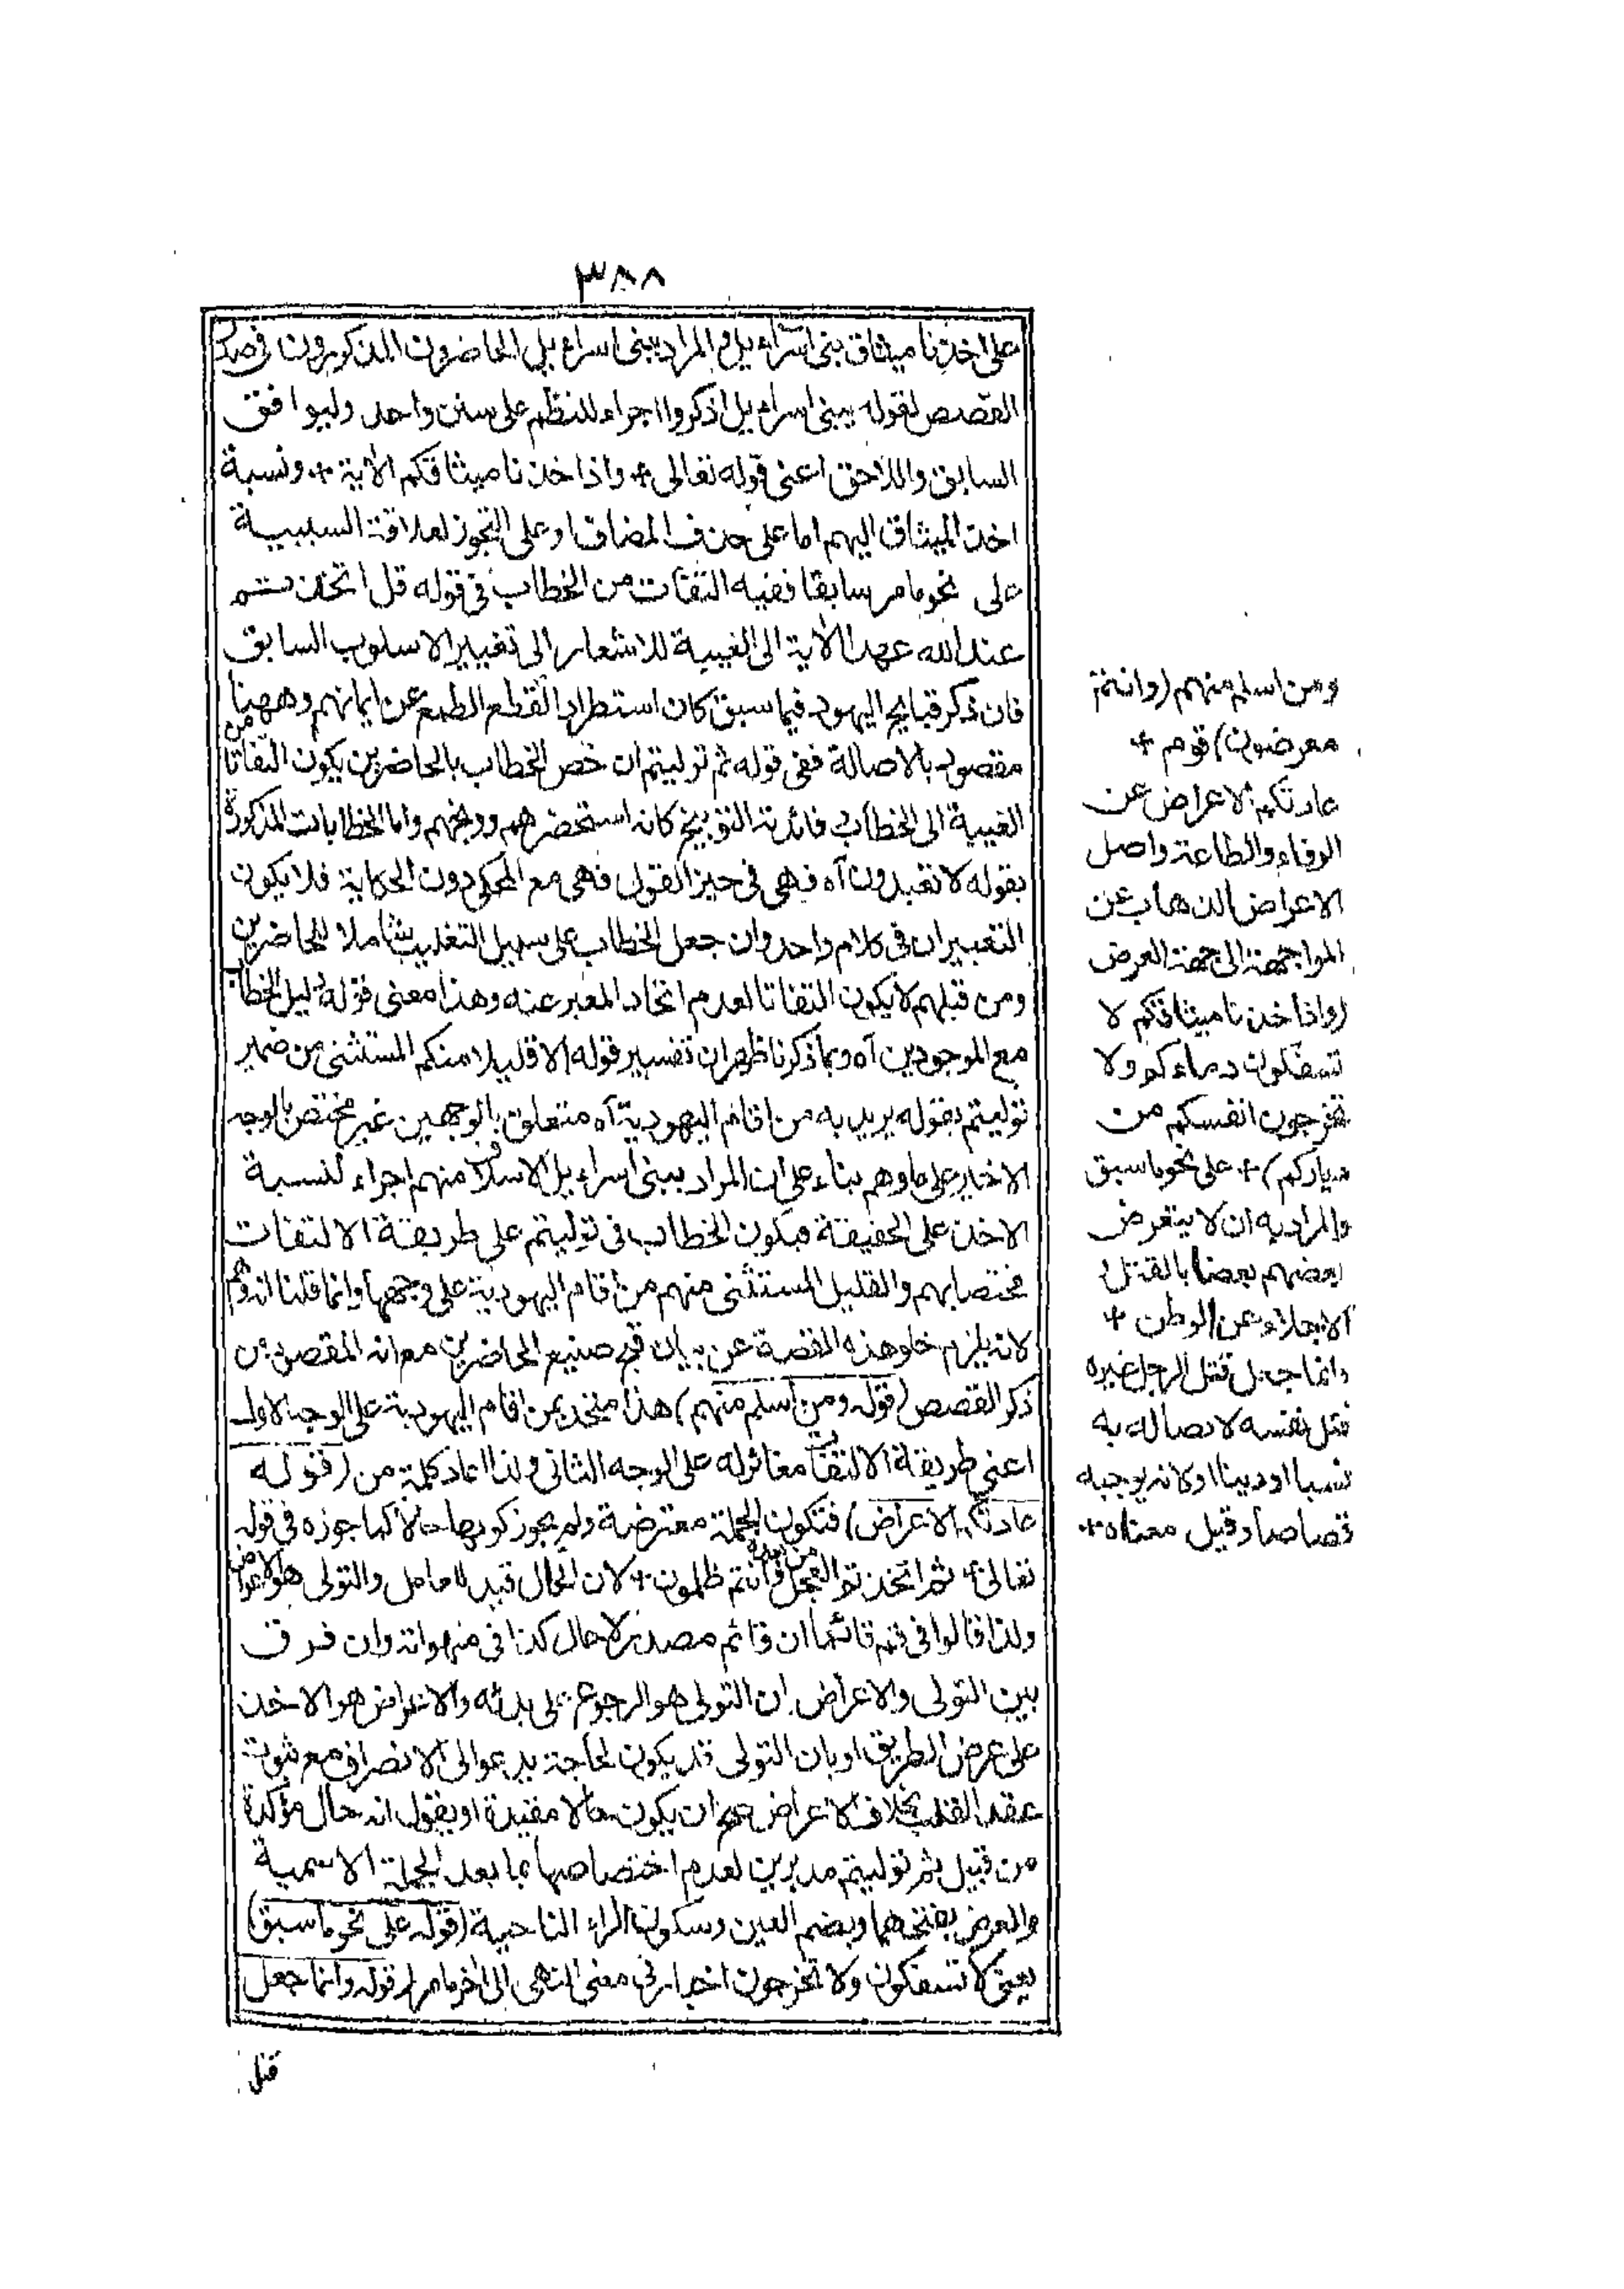 ٣٨٨
على اخذنا ميثاق بنى اسراءيل والمراد ببنى اسراءيل الحاضرون المذكورون فى صدر
القصص لقوله يبنى اسراءيل اذكروا اجراء للنظم على سنن واحد وليوافق
السابق واللاحق اعنى قوله تعالى + واذا خذنا ميثاقكم الاية + ونسبة
اخذ الميثاق اليهم اما على حذف المضاف او على التجوز لعلاقة السببية
على نحو مامر سابقا ففيه التفات من الخطاب فى قوله قل اتخذتم
عند الله عهدا الاية الى الغيبة للاشعار الى تغيير الاسلوب السابق
فان ذكر قبايح اليهود فيما سبق كان استطرادا لقطع الطمع عن ايمانهم وههنا
مقصود بالاصالة ففى قوله ثم توليتم ان خص الخطاب بالحاضرين يكون التفاتا من
الغيبة الى الخطاب فائدته التوبيخ كانه استحضرهم ووبخهم واما الخطابات المذكورة
بقوله لا تعبدون آه فهى فى حيز القول فهى مع المحكى دون الحكاية فلا يكون
التعبيران فى كلام واحد وان جعل الخطاب على سبيل التغليب شاملا للحاضرين
ومن قبلهم لا يكون التفاتا لعدم اتحاد المعبر عنه وهذا معنى قوله الخطاب
مع الموجودين آه وبما ذكرنا ظهر ان تفسير قوله الا قليلا منكم المستثنى من ضمير
توليتم بقوله يريد به من اقام اليهودية آه متعلق بالوجهين غير مختص بالوجه
الاخير على ما وهم بناء على ان المراد ببنى اسراءيل الاسلاف منهم اجراء لنسبة
الاخذ على الحقيقة فيكون الخطاب فى توليتم على طريقة الالتفات
مختصا بهم والقليل المستثنى منهم من اقام اليهودية على وجهها وانما قلنا انه وهم
لانه يلزم خلو هذه القصة عن بيان قبح صنيع الحاضرين مع انه المقصود من
ذكر القصص (قوله ومن اسلم منهم) هذا متحد بمن اقام اليهودية على الوجه الاول
اعنى طريقة الالتفات مغائر له على الوجه الثانى ولذا اعاد كلمة من (قوله
عادتكم الاعراض) فتكون الجملة معترضة ولم يجوز كونها حالا كما جوزه فى قوله
تعالى + ثم اتخذتم العجل من بعده وانتم ظلمون + لان الحال قيد للعامل والتولى هو الاعراض
ولذا قالوا فى قم قائما ان قائم مصدر لا حال كذا فى منهواته وان فرق
بين التولى والاعراض ان التولى هو الرجوع على بدئه والاعراض هو الاخذ
على عرض الطريق او بان التولى قد يكون لحاجة يدعو الى الانصراف مع ثبوت
عقد القلب بخلاف الاعراض صح ان يكون حالا مقيدة او يقول انه حال مؤكدة
من قبيل ثم توليتم مدبرين لعدم اختصاصها بما بعد الجملة الاسمية
والعرض بفتحهما وبضم العين وسكون الراء الناحية (قوله على نحو ما سبق)
يعنى لا تسفكون ولا تخرجون اخبار فى معنى النهى الى اخر مامر (قوله وانما جعل
قتل
ومن اسلم منهم (وانتم
معرضون) قوم +
عادتكم الاعراض عن
الوفاء والطاعة واصل
الاعراض الذهاب عن
المواجهة الى جهة العرض
(واذا خذنا ميثاقكم لا
تسفكون دماءكم ولا
تخرجون انفسكم من
دياركم) + على نحو ما سبق
والمراد به ان لا يتعرض
بعضهم بعضا بالقتل و
الاجلاء عن الوطن +
وانما جعل قتل الرجل غيره
قتل نفسه لاتصاله به
نسبا او دينا او لانه يوجبه
قصاصا وقيل معناه +